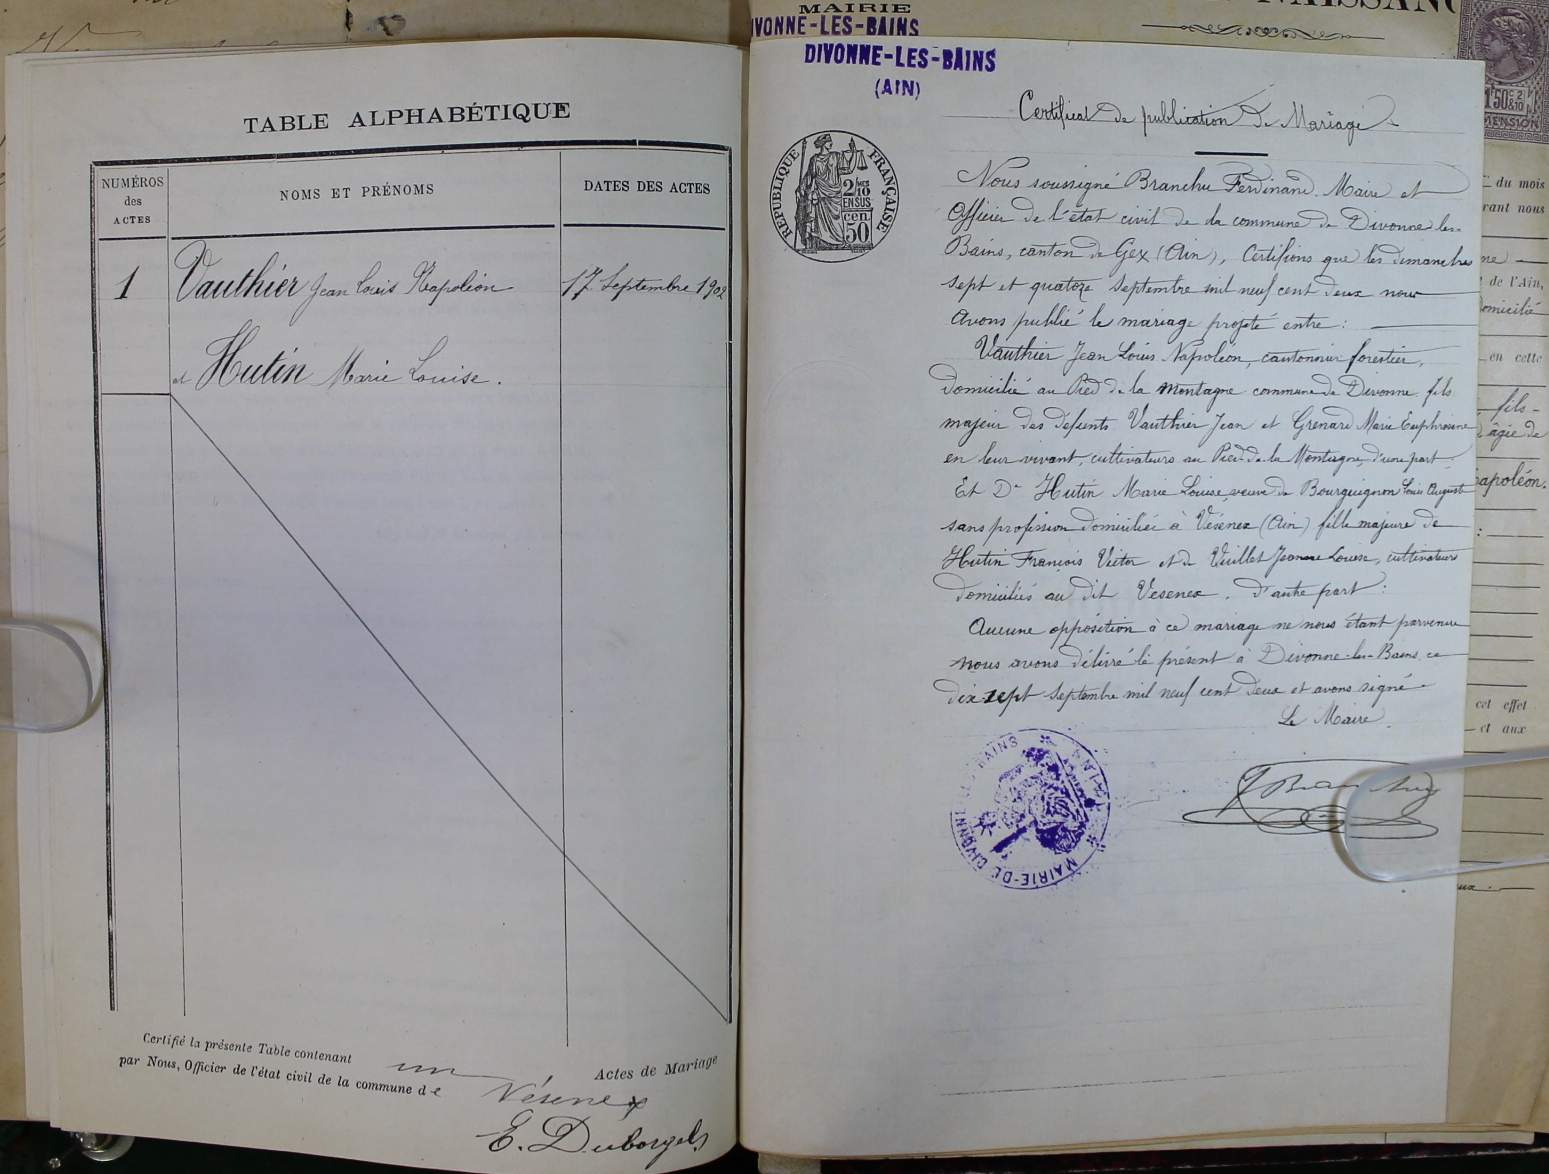 TABLE ALPHABÉTIQUE
NUMÉROS
des
ACTES
NOMS ET PRÉNOMS
DATES DES ACTES
1
Vauthier Jean Louis Napoléon
17 Septembre 1902
et Hutin Marie Louise.
Certifié la présente Table contenant un Actes de Mariage
par Nous, Officier de l'état civil de la commune de Vésenex
E. Duborgel
MAIRIE
IVONNE-LES-BAINS
DIVONNE-LES-BAINS
(AIN)
RÉPUBLIQUE FRANÇAISE
2/10 EN SUS
50 cen
Certificat de publication de Mariage
Nous soussigné Branchu Ferdinand Maire et
Officier de l'état civil de la commune de Divonne les
Bains, canton de Gex (Ain), Certifions que les dimanches
sept et quatorze Septembre mil neuf cent deux nous
avons publié le mariage projeté entre :
Vauthier Jean Louis Napoléon, cantonnier forestier,
domicilié au Pied de la Montagne commune de Divonne fils
majeur des défunts Vauthier Jean et Grenard Marie Euphrosine
en leur vivant, cultivateurs au Pied de la Montagne, d'une part :
Et De Hutin Marie Louise, veuve de Bourguignon Louis Auguste
sans profession domiciliée à Vésenex (Ain) fille majeure de
Hutin François Victor et de Vuillet Jeanne Louise, cultivateurs
domiciliés au dit Vesenex, d'autre part :
Aucune opposition à ce mariage ne nous étant parvenue
nous avons délivré le présent à Divonne-les-Bains, ce
dix sept Septembre mil neuf cent deux et avons signé
Le Maire
Branchu
MAIRIE-DE DIVONNE-LES-BAINS * (AIN) *
NAISSANC
1F50c 2/10
DIMENSION
du mois
rant nous
ne
de l'Ain,
omicilié
en cette
fils
âgée de
apoléon.
cet effet
et aux